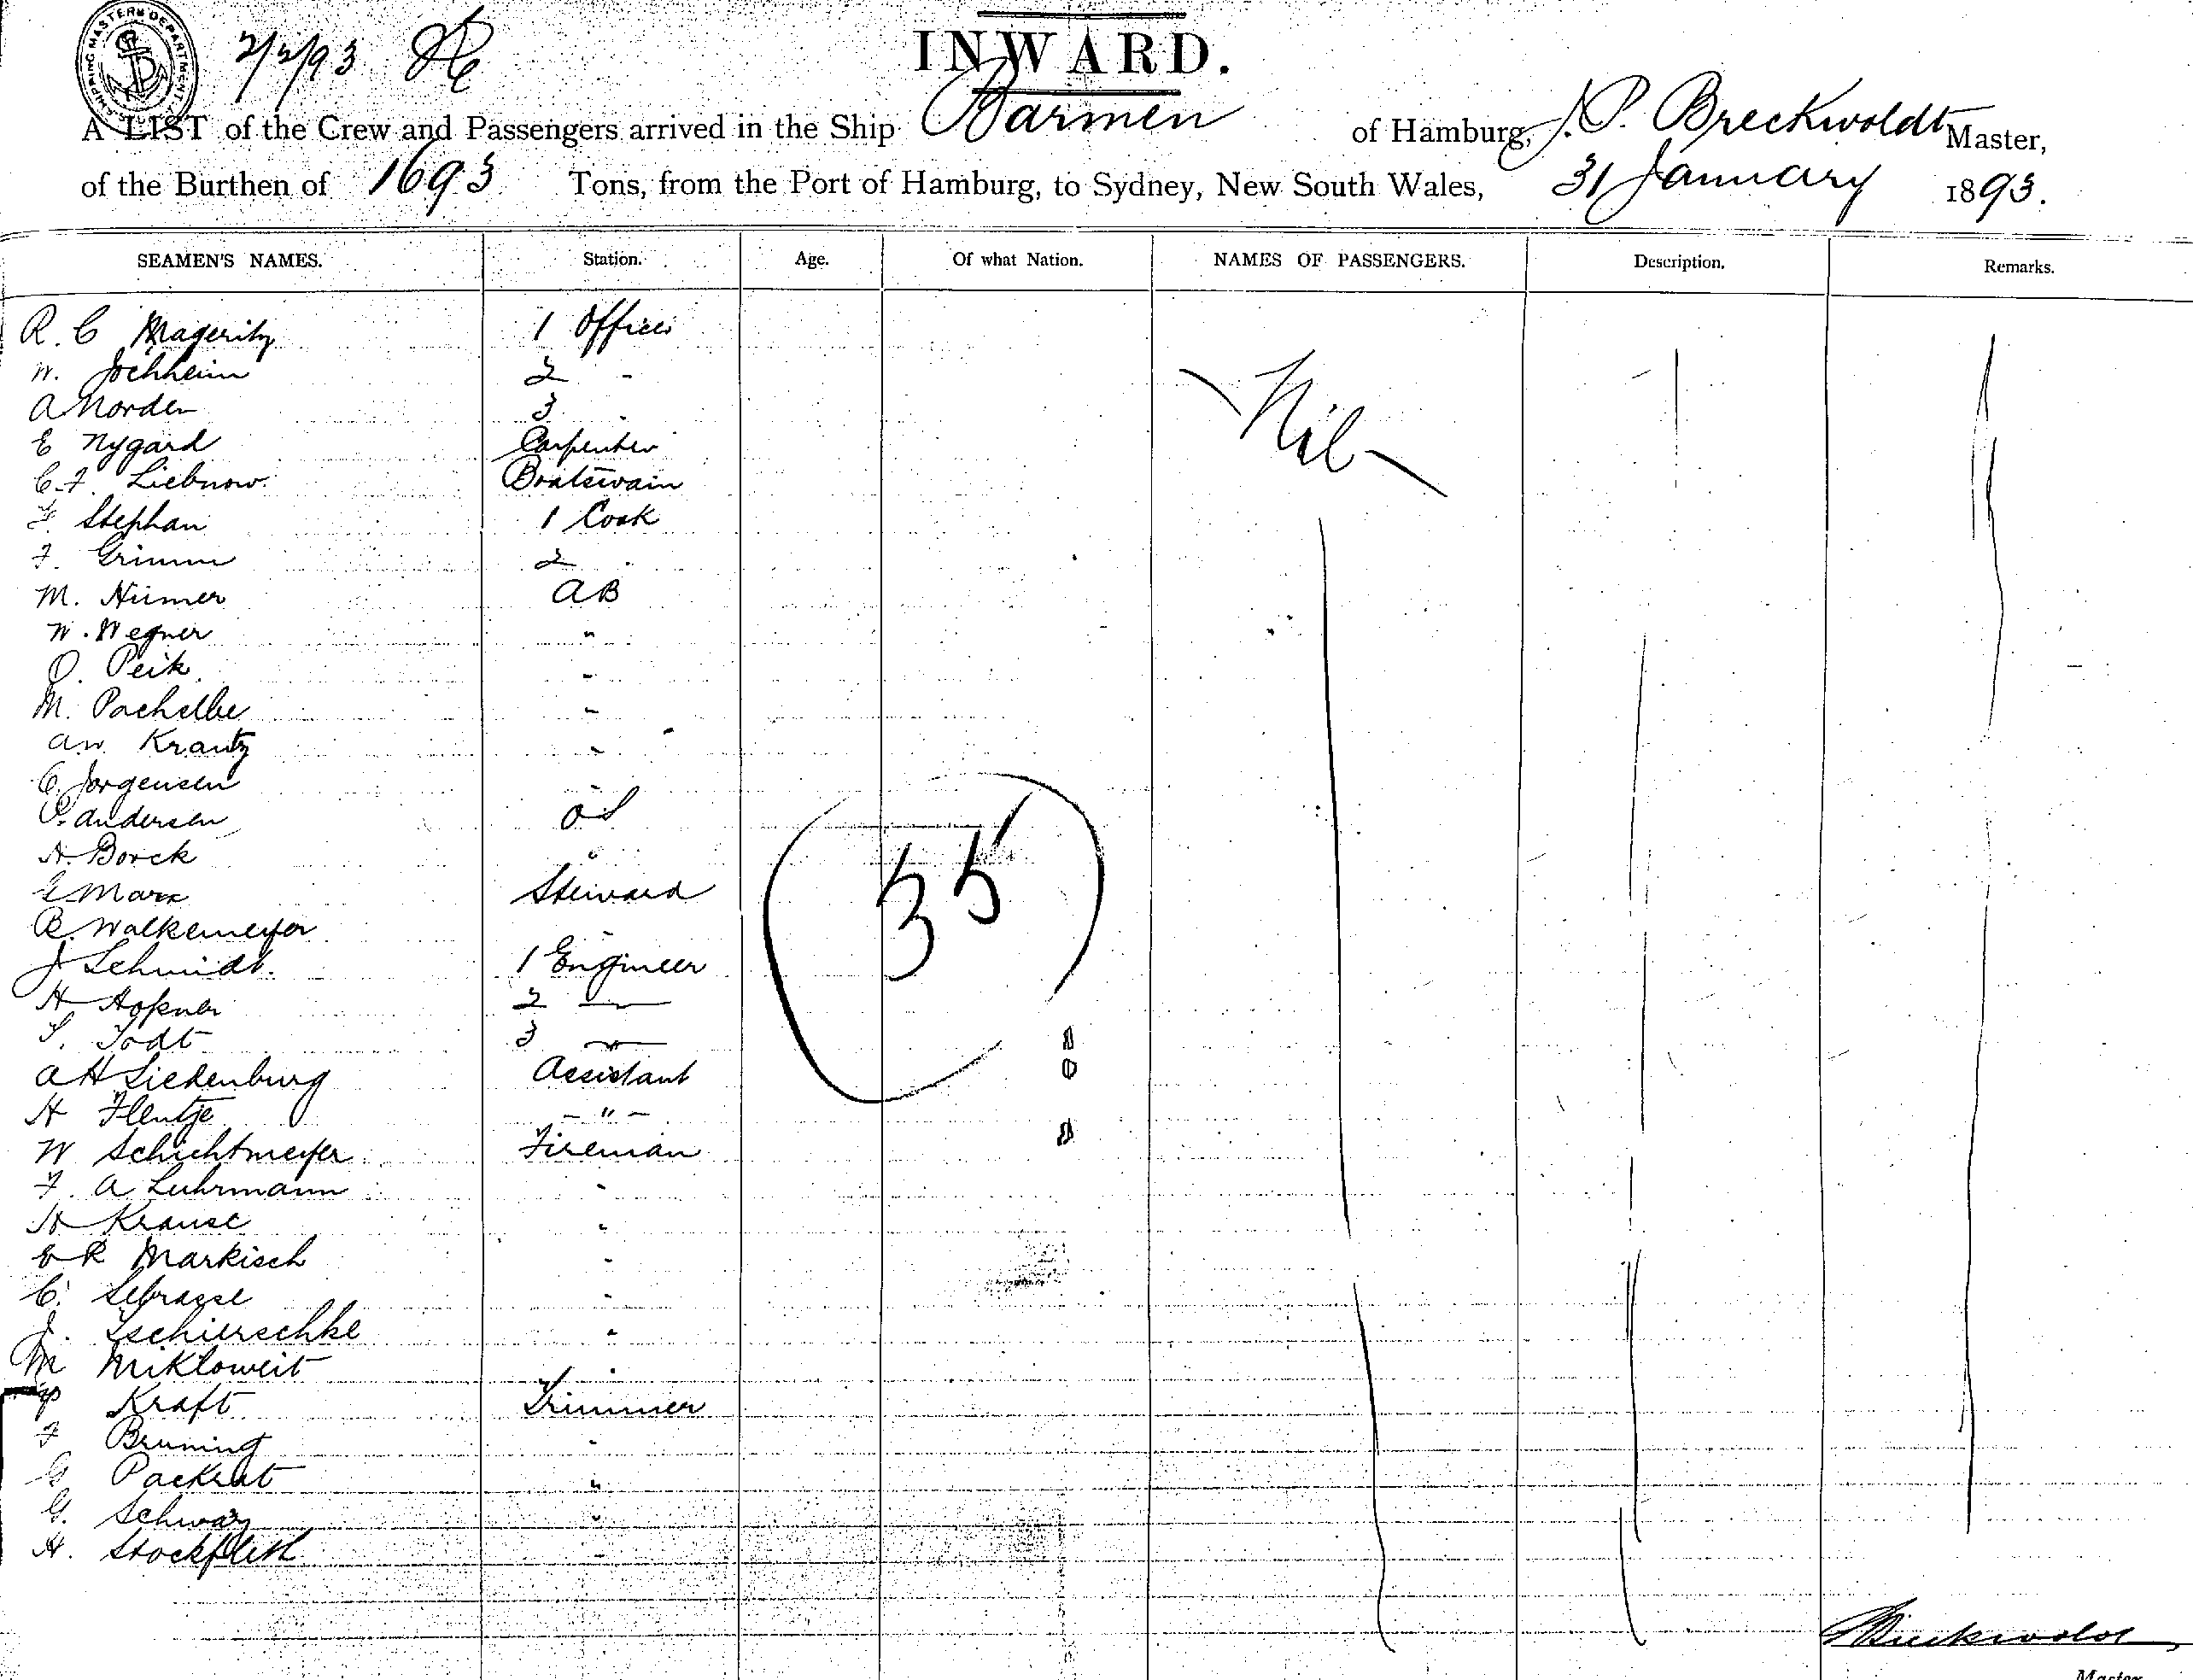 SHIPPING MASTERS DEPARTMENT
2/2/93
INWARD.
A LIST of the Crew and Passengers arrived in the Ship Barmen of Hamburg, J. P. Breckwoldt Master,
of the Burthen of 1693 Tons, from the Port of Hamburg, to Sydney, New South Wales, 31 January 1893.
SEAMEN'S NAMES. Station. Age. Of what Nation. NAMES OF PASSENGERS. Description. Remarks.
R. C Mageritz 1 Officer
W. Jochheim 2 -
A Norden 3 . Nil
E Nygard Carpenter
C. F. Liebnow. Boatswain
F. Stephan 1 Cook
F. Grimm 2 .
M. Niemer AB
W. Wegner "
O. Peik "
M. Pachelbe "
A W. Krantz "
C. Jorgensen "
P. Andersen OS
A. Borck "
E Marx Steward
B. Walkemeyer "
J Schmidt. 1 Engineer
H Hopner 2 "
S. Todt 3 "
A H Siedenburg Assistant
H Flentje - " -
W Schichtmeyer Fireman
F. A Luhrmann "
H Krause "
E R Markisch "
C. Lebrasse "
J. Tschierschke "
M Mikloweit "
P Kraft Trimmer
F Bruning "
G Packrat "
G. Schwarz "
H. Stockfleth "
35
Breckwoldt
Master